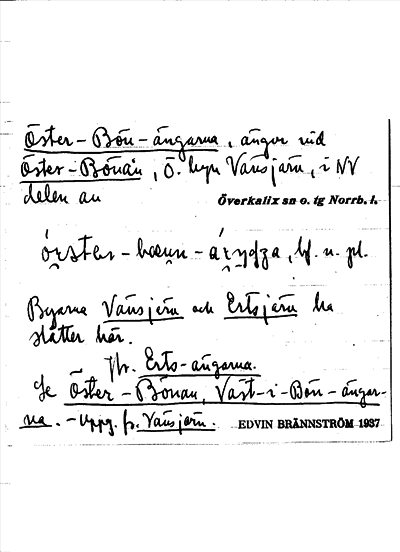 Öster-Bön-ängarna, ängar vid
Öster-Bönån, Ö. byn Vänsjärn, i NV
delen av Överkalix sn o. tg Norrb. l.
bf. n. pl.
Byarna Vänsjärn och Ertsjärn ha
slåtter här.
Jfr. Erts-ängarna.
Se Öster-Bönan, Väst-i-Bön-ängar-
na. - Uppg. fr. Vänsjärn. EDVIN BRÄNNSTRÖM 1937